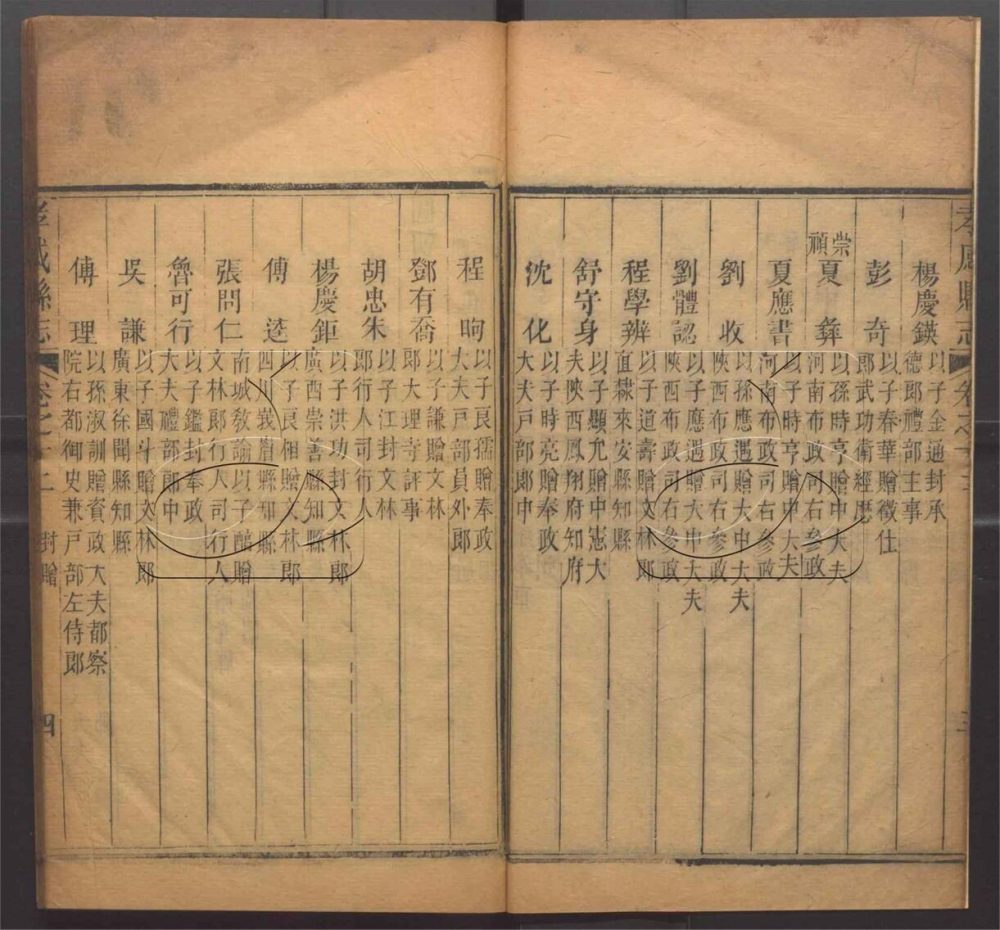 楊慶鍈 以子金通封承德郎禮部主事
彭奇 以子春華贈徵仕郎武功衛經歷
崇禎
夏彝 以孫時亨贈中大夫河南布政司右參政
夏應書 以子時亨贈中大夫河南布政司右參政
劉收 以孫應遇贈大中大夫陝西布政司右參政
劉體認 以子應遇贈大中大夫陝西布政司右參政
程學辨 以子道壽贈文林郎直隸來安縣知縣
舒守身 以子顯允贈中憲大夫陝西鳳翔府知府
沈化 以子時亮贈奉政大夫戶部郎中
程昫 以子良孺贈奉政大夫戶部員外郎
鄧有喬 以子謙贈文林郎大理寺評事
胡忠朱 以子江封文林郎行人司行人
楊慶鉅 以子洪功封文林郎廣西崇善縣知縣
傅 以子良相贈文林郎四川峩眉縣知縣
張問仁 南城教諭以子酺贈文林郎行人司行人
魯可行 以子鑑封奉政大夫禮部郎中
吳謙 以子國斗贈文林郎廣東徐聞縣知縣
傅理 以孫淑訓贈資政大夫都察院右都御史兼戶部左侍郎
孝感縣志 卷之十二 封贈 四